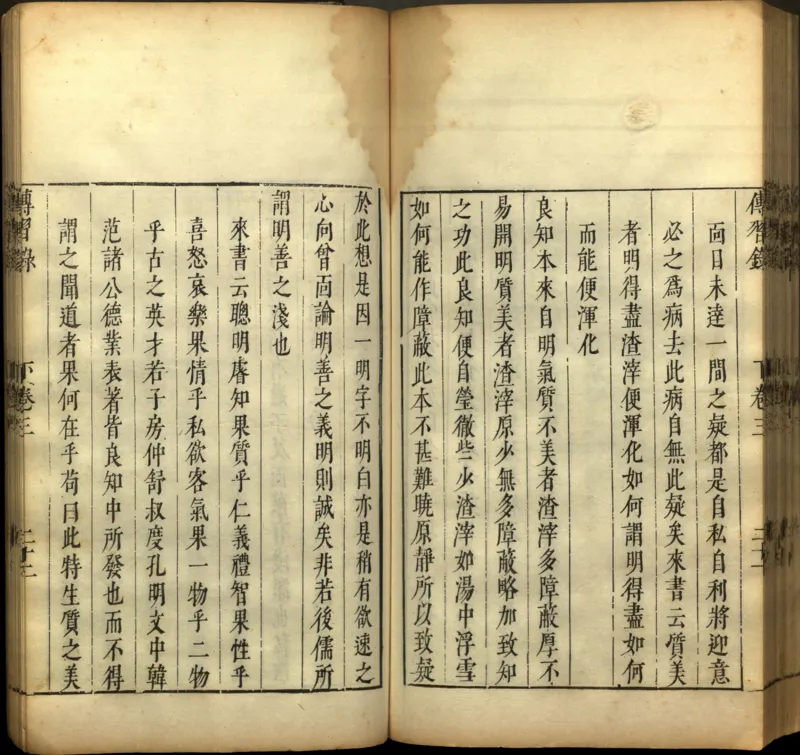 傳習錄
下卷三
面日未達一間之疑都是自私自利將迎意
必之為病去此病自無此疑矣來書云質美
者明得盡渣滓便渾化如何謂明得盡如何
而能便渾化
良知本來自明氣質不美者渣滓多障蔽厚不
易開明質美者渣滓原少無多障蔽略加致知
之功此良知便自瑩徹些少渣滓如湯中浮雪
如何能作障蔽此本不甚難曉原靜所以致疑
於此想是因一明字不明白亦是稍有欲速之
心向曾面論明善之義明則誠矣非若後儒所
謂明善之淺也
來書云聰明睿知果質乎仁義禮智果性乎
喜怒哀樂果情乎私欲客氣果一物乎二物
乎古之英才若子房仲舒叔度孔明文中韓
范諸公德業表著皆良知中所發也而不得
謂之聞道者果何在乎苟曰此特生質之美
傳習錄
下卷三
二十二